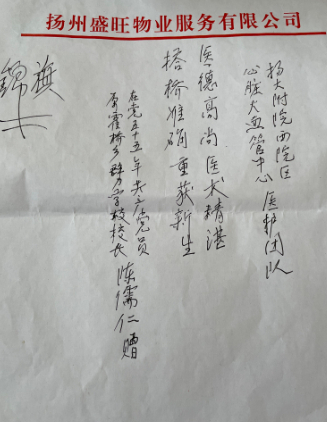 扬州盛旺物业服务有限公司
扬大附院西院区
心脏大血管中心 医护团队
医德高尚医术精湛
搭桥准确重获新生
在党五十五年共产党员
原霍桥乡群力学校校长 陈儒仁 赠
锦旗